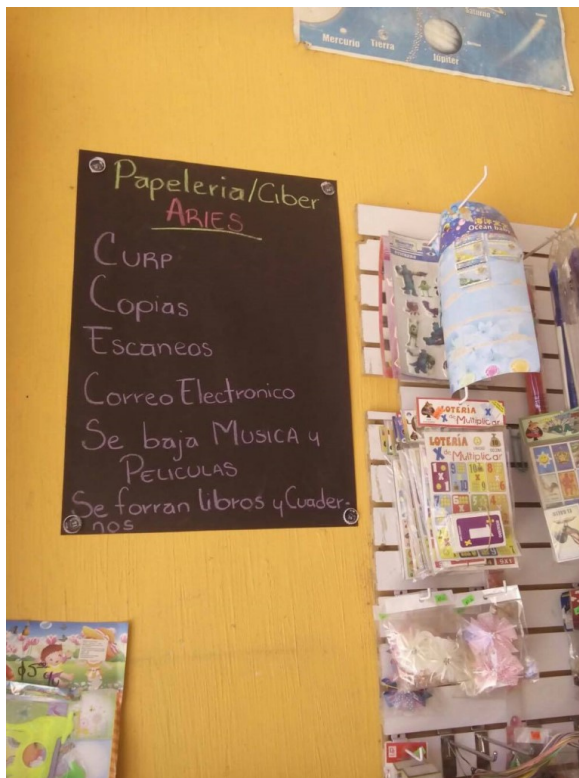 Saturno
Mercurio
Tierra
Júpiter
Papeleria/Ciber
ARIES
CURP
Copias
Escaneos
Correo Electronico
Se baja MUSICA y
PELICULAS
Se forran libros y Cuader-
nos
LOTERÍA
x de Multiplicar
LOTERÍA
x de Multiplicar